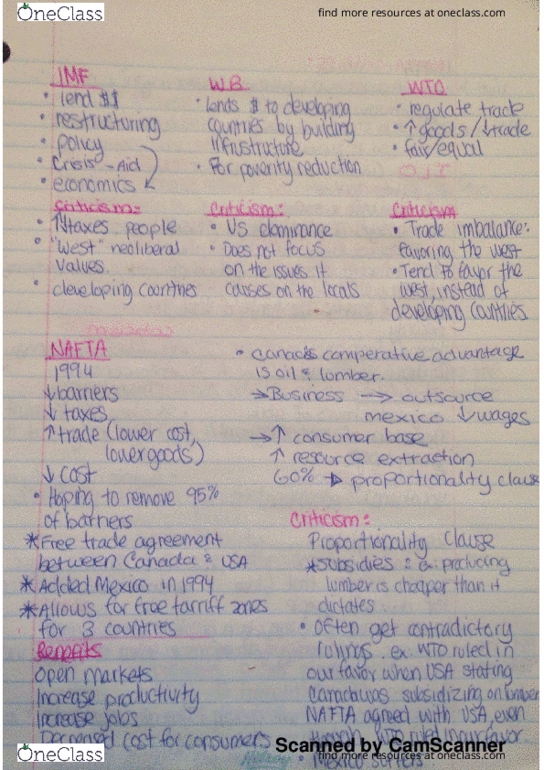 OneClass
find more resources at oneclass.com
IMF
• lend $$
• restructuring
• policy
• Crisis - Aid
• economics
Criticism:
• ↑taxes people
• "West" neoliberal
values.
• developing countries
W.B
• lends $ to developing
countries by building
infrustructure
• For poverity reduction
Criticism:
• US dominance
• Does not focus
on the issues it
causes on the locals
WTO
• regulate trade
• ↑goods/↓trade
• fair/equal
Criticism
• Trade imbalance:
favoring the west
• Tend to favor the
west, instead of
developing countries.
NAFTA
1994
↓barriers
↓taxes
↑trade (lower cost,
lower goods)
↓ cost
• Hoping to remove 95%
of barriers
*Free trade agreement
between Canada & USA
* Added Mexico in 1994
*Allows for free tarriff zones
for 3 countries
Benefits
Open markets
Increase productivity
Increase jobs
Decreased cost for consumers
• Canada's comperative advantage
is oil & lumber.
→Business → outsource
mexico ↓wages
→↑ consumer base
↑ resource extraction
60% → proportionality clause
Criticism:
Proportionality Clause
*Subsidies: ex. producing
lumber is cheaper than it
dictates
• Often get contradictory
rulings. ex WTO ruled in
our favor when USA stating
Canada was subsidizing on lumber
NAFTA agreed with USA, even
though WTO ruled in our favor
• Mexico suffers
Scanned by CamScanner
OneClass
find more resources at oneclass.com